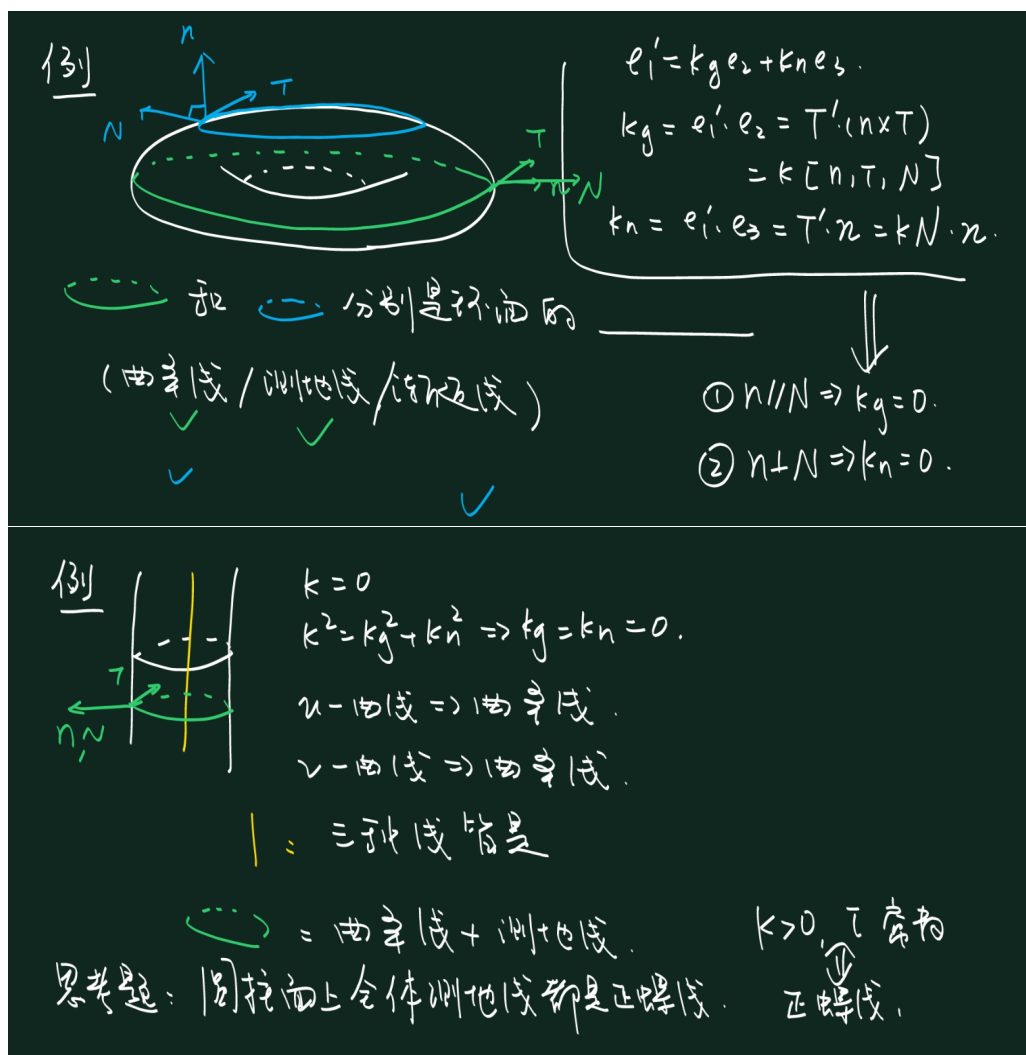 例
n
T
N
T
n N
e₁' = kg e₂ + kn e₃.
kg = e₁'·e₂ = T'·(n×T)
= k[n,T,N]
kn = e₁'·e₃ = T'·n = kN·n.
和 分别是环面的
(曲率线/测地线/渐近线)
① n//N ⇒ kg=0.
② n⊥N ⇒ kn=0.
例
k=0
k²=kg²+kn² ⇒ kg=kn=0.
T
n,N
u-曲线 ⇒ 曲率线.
v-曲线 ⇒ 曲率线.
: 三种线皆是
: 曲率线+测地线.
k>0, τ 常为
⇕
思考题: 圆柱面上全体测地线都是正螺线.
正螺线.